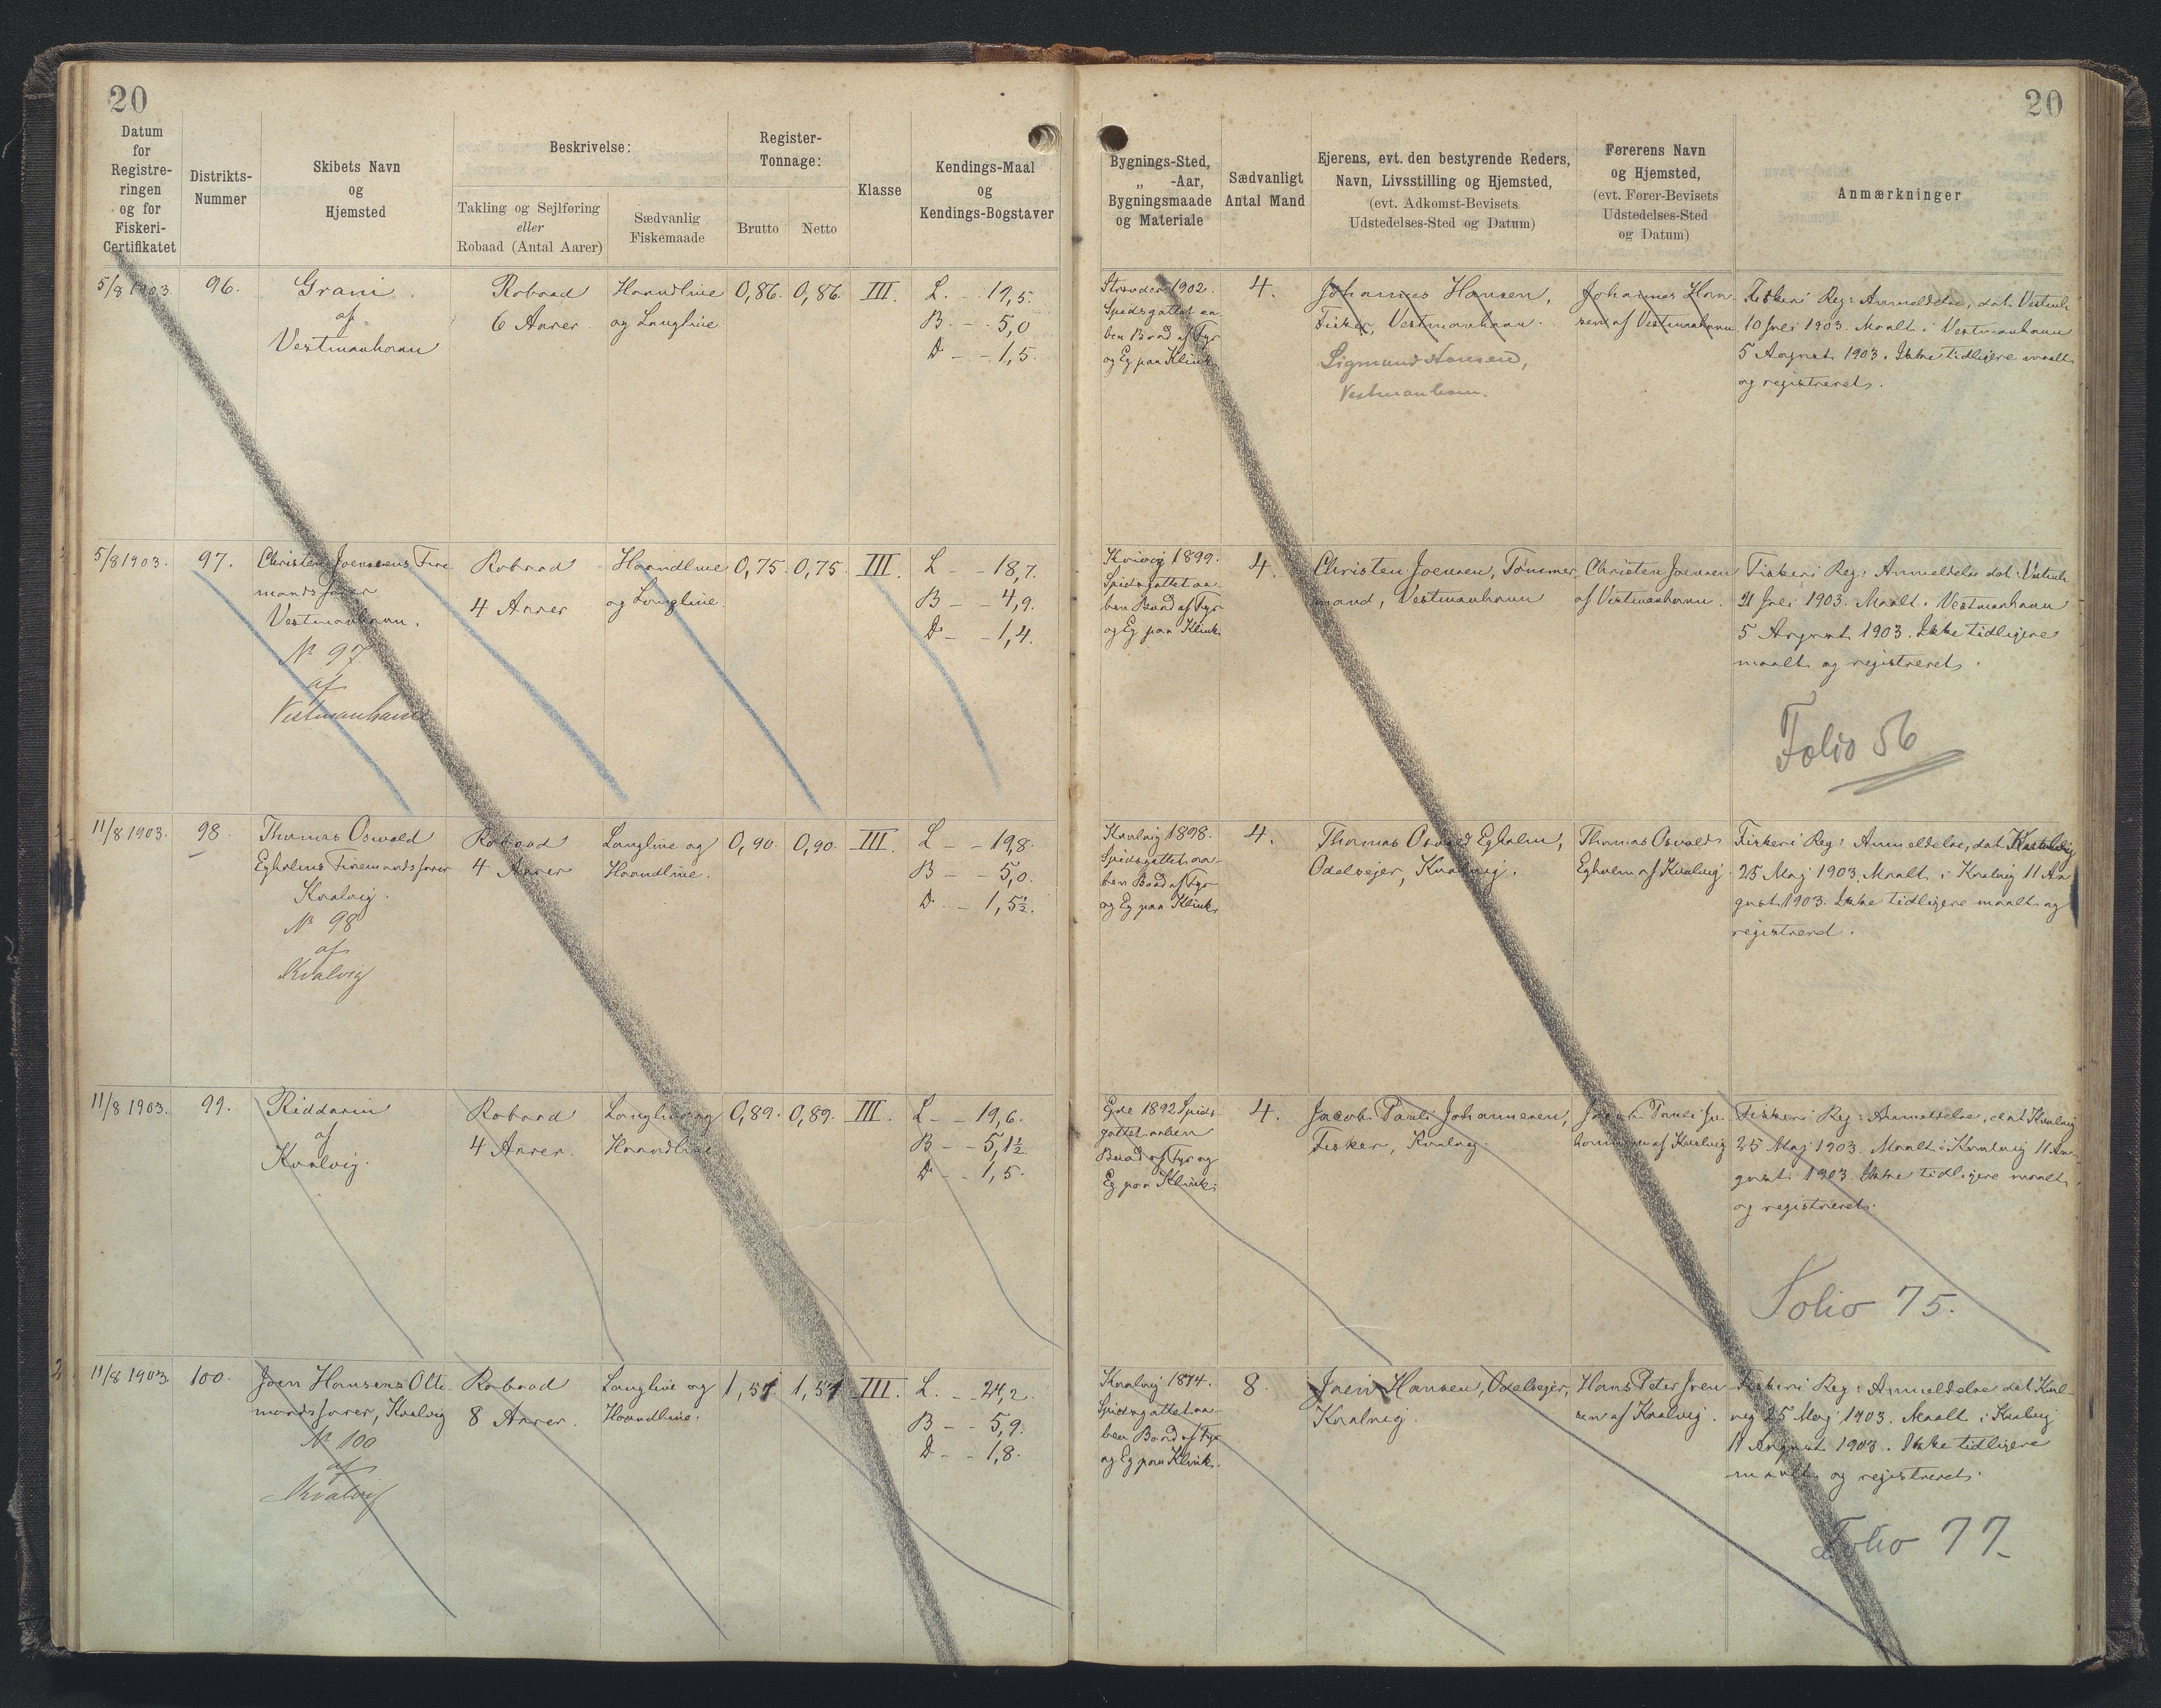 20
20
Datum
for
Registre-
ringen
og for
Fiskeri-
Certifikatet
Distrikts-
Nummer
Skibets Navn
og
Hjemsted
Beskrivelse:
Takling og Sejlføring
eller
Robaad (Antal Aarer)
Sædvanlig
Fiskemaade
Register-
Tonnage:
Brutto
Netto
Klasse
Kendings-Maal
og
Kendings-Bogstaver
Bygnings-Sted,
„ -Aar,
Bygningsmaade
og Materiale
Sædvanligt
Antal Mand
Ejerens, evt. den bestyrende Reders,
Navn, Livsstilling og Hjemsted,
(evt. Adkomst-Bevisets
Udstedelses-Sted og Datum)
Førerens Navn
og Hjemsted,
(evt. Fører-Bevisets
Udstedelses-Sted
og Datum)
Anmærkninger
5/8 1903.
96.
Grani
af
Vestmanhavn
Robaad
6 Aarer.
Haandline
og Langline
0,86.
0,86.
III.
L. - 19,5.
B. - - 5,0
D - - 1,5.
Strænder 1902.
Spidsgattet aa-
ben Baad af Fyr
og Eg paa Klink
4.
Johannes Hansen,
Fisker, Vestmanhavn.
Sigmund Hansen,
Vestmanhavn.
Johannes Han-
sen af Vestmanhavn
Fiskeri Reg: Anmeldelse, dat. Vestmh
10 Juli 1903. Maalt i Vestmanhavn
5 August 1903. Ikke tidligere maalt
og registreret.
5/8 1903.
97.
Christen Joensens Fire-
mandsfarer
Vestmanhavn.
No 97
af
Vestmanhavn
Robaad
4 Aarer
Haandline
og Langline.
0,75.
0,75.
III.
L - - 18,7.
B - - 4,9.
D - - 1,4.
Kvivig 1899.
Spidsgattet aa-
ben Baad af Fyr
og Eg paa Klink
4.
Christen Joensen, Tømmer-
mand, Vestmanhavn
Christen Joensen
af Vestmanhavn.
Fiskeri Reg: Anmeldelse dat. Vestmh
21 Juli 1903. Maalt i Vestmanhavn
5 August 1903. Ikke tidligere
maalt og registreret.
Folio 56
11/8 1903.
98.
Thomas Oswald
Egholms Firemandsfarer
Kvalvig.
No 98
af
Kvalvig
Robaad
4 Aarer
Langline og
Haandline.
0,90.
0,90.
III.
L - - 19,8.
B - - 5,0.
D. - 1,5½.
Kvalvig 1898.
Spidsgattet aa-
ben Baad af Fyr
og Eg paa Klink
4.
Thomas Osvald Egholm,
Odelsejer, Kvalvig.
Thomas Osvald
Egholm af Kvalvig
Fiskeri Reg: Anmeldelse, dat. Kvalvig
25 Maj 1903. Maalt i Kvalvig 11 Au-
gust 1903. Ikke tidligere maalt og
registreret.
11/8 1903.
99.
Riddarin
af
Kvalvig.
Robaad
4 Aarer.
Langline og
Haandline
0,89.
0,89.
III.
L - - 19,6.
B - - 5,1½
D - - 1,5.
Ejde 1892 Spids-
gattet aaben
Baad af Fyr og
Eg paa Klink.
4.
Jacob Pauli Johannesen,
Fisker, Kvalvig.
Jacob Pauli Jo-
hannesen af Kvalvig
Fiskeri Reg: Anmeldelse, dat Kvalvig
25 Maj 1903. Maalt i Kvalvig 11 Au-
gust 1903. Ikke tidligere maalt
og registreret.
Folio 75.
11/8 1903
100.
Joen Hansens Otte-
mandsfarer, Kvalvig
No 100
af
Kvalvig
Robaad
8 Aarer.
Langline og
Haandline.
1,57
1,57
III.
L. - 24,2.
B - - 5,9.
D - - 1,8.
Kvalvig 1874.
Spidsgattet aa-
ben Baad af Fyr
og Eg paa Klink.
8.
Joen Hansen, Odelsejer,
Kvalvig.
Hans Peter Joen-
sen af Kvalvig.
Fiskeri Reg: Anmeldelse dat Kval-
vig 25 Maj 1903. Maalt i Kvalvig
11 August 1903. Ikke tidligere
maalt og registreret.
Folio 77